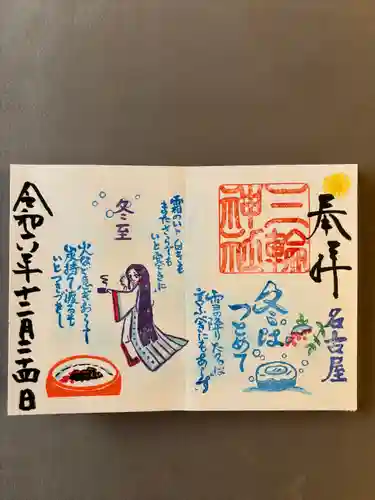 奉拝
三輪
神社
名古屋
冬は
つとめて
雪の降りたるは
言ふべきにもあらず
冬至
霜のいと白きも
またさらでも
いと寒きに
火など急ぎおこして
炭持て渡るも
いとつきづきし